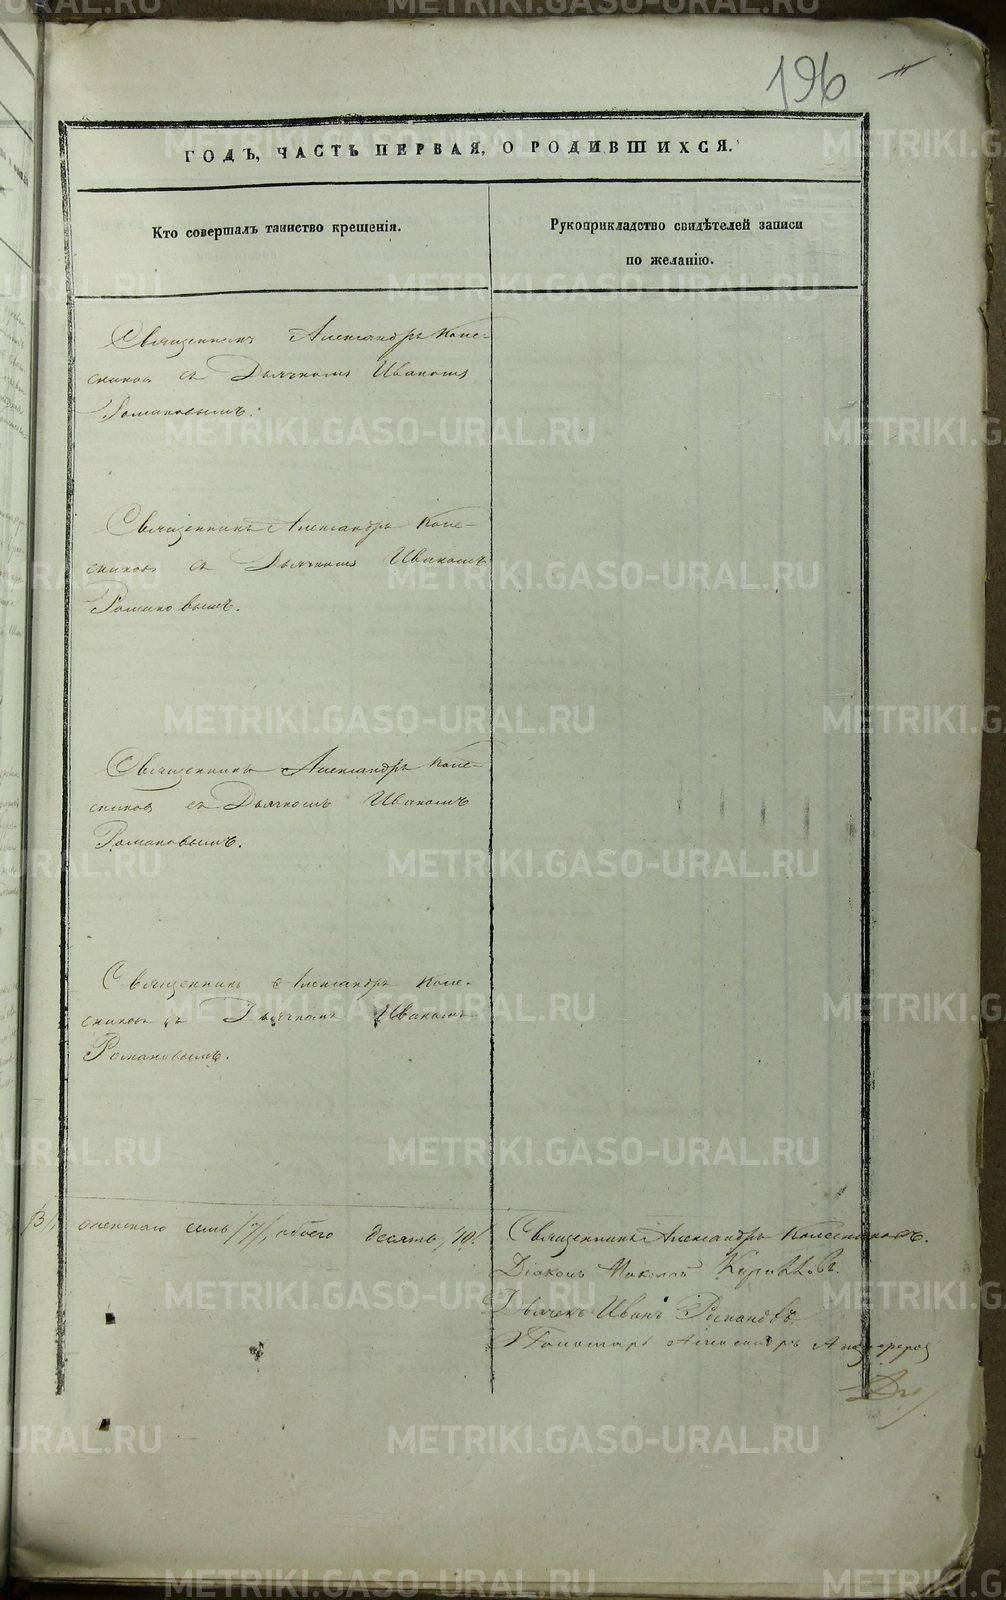 196
ГОДЪ, ЧАСТЬ ПЕРВАЯ, О РОДИВШИХСЯ.
Кто совершалъ таинство крещенія.
Рукоприкладство свидѣтелей записи
по желанію.
Священникъ Александръ Коле-
сниковъ съ Дьячкомъ Иваномъ
Романовымъ.
Священникъ Александръ Коле-
сниковъ съ Дьячкомъ Иваномъ
Романовымъ.
Священникъ Александръ Коле-
сниковъ съ Дьячкомъ Иваномъ
Романовымъ.
Священникъ Александръ Коле-
сниковъ съ Дьячкомъ Иваномъ
Романовымъ.
женскаго семь /7/, обоего десять /10/.
Священникъ Александръ Колесниковъ.
Діаконъ Николай
Дьячекъ Иванъ Романовъ.
Пономарь Александръ
METRIKI.GASO-URAL.RU